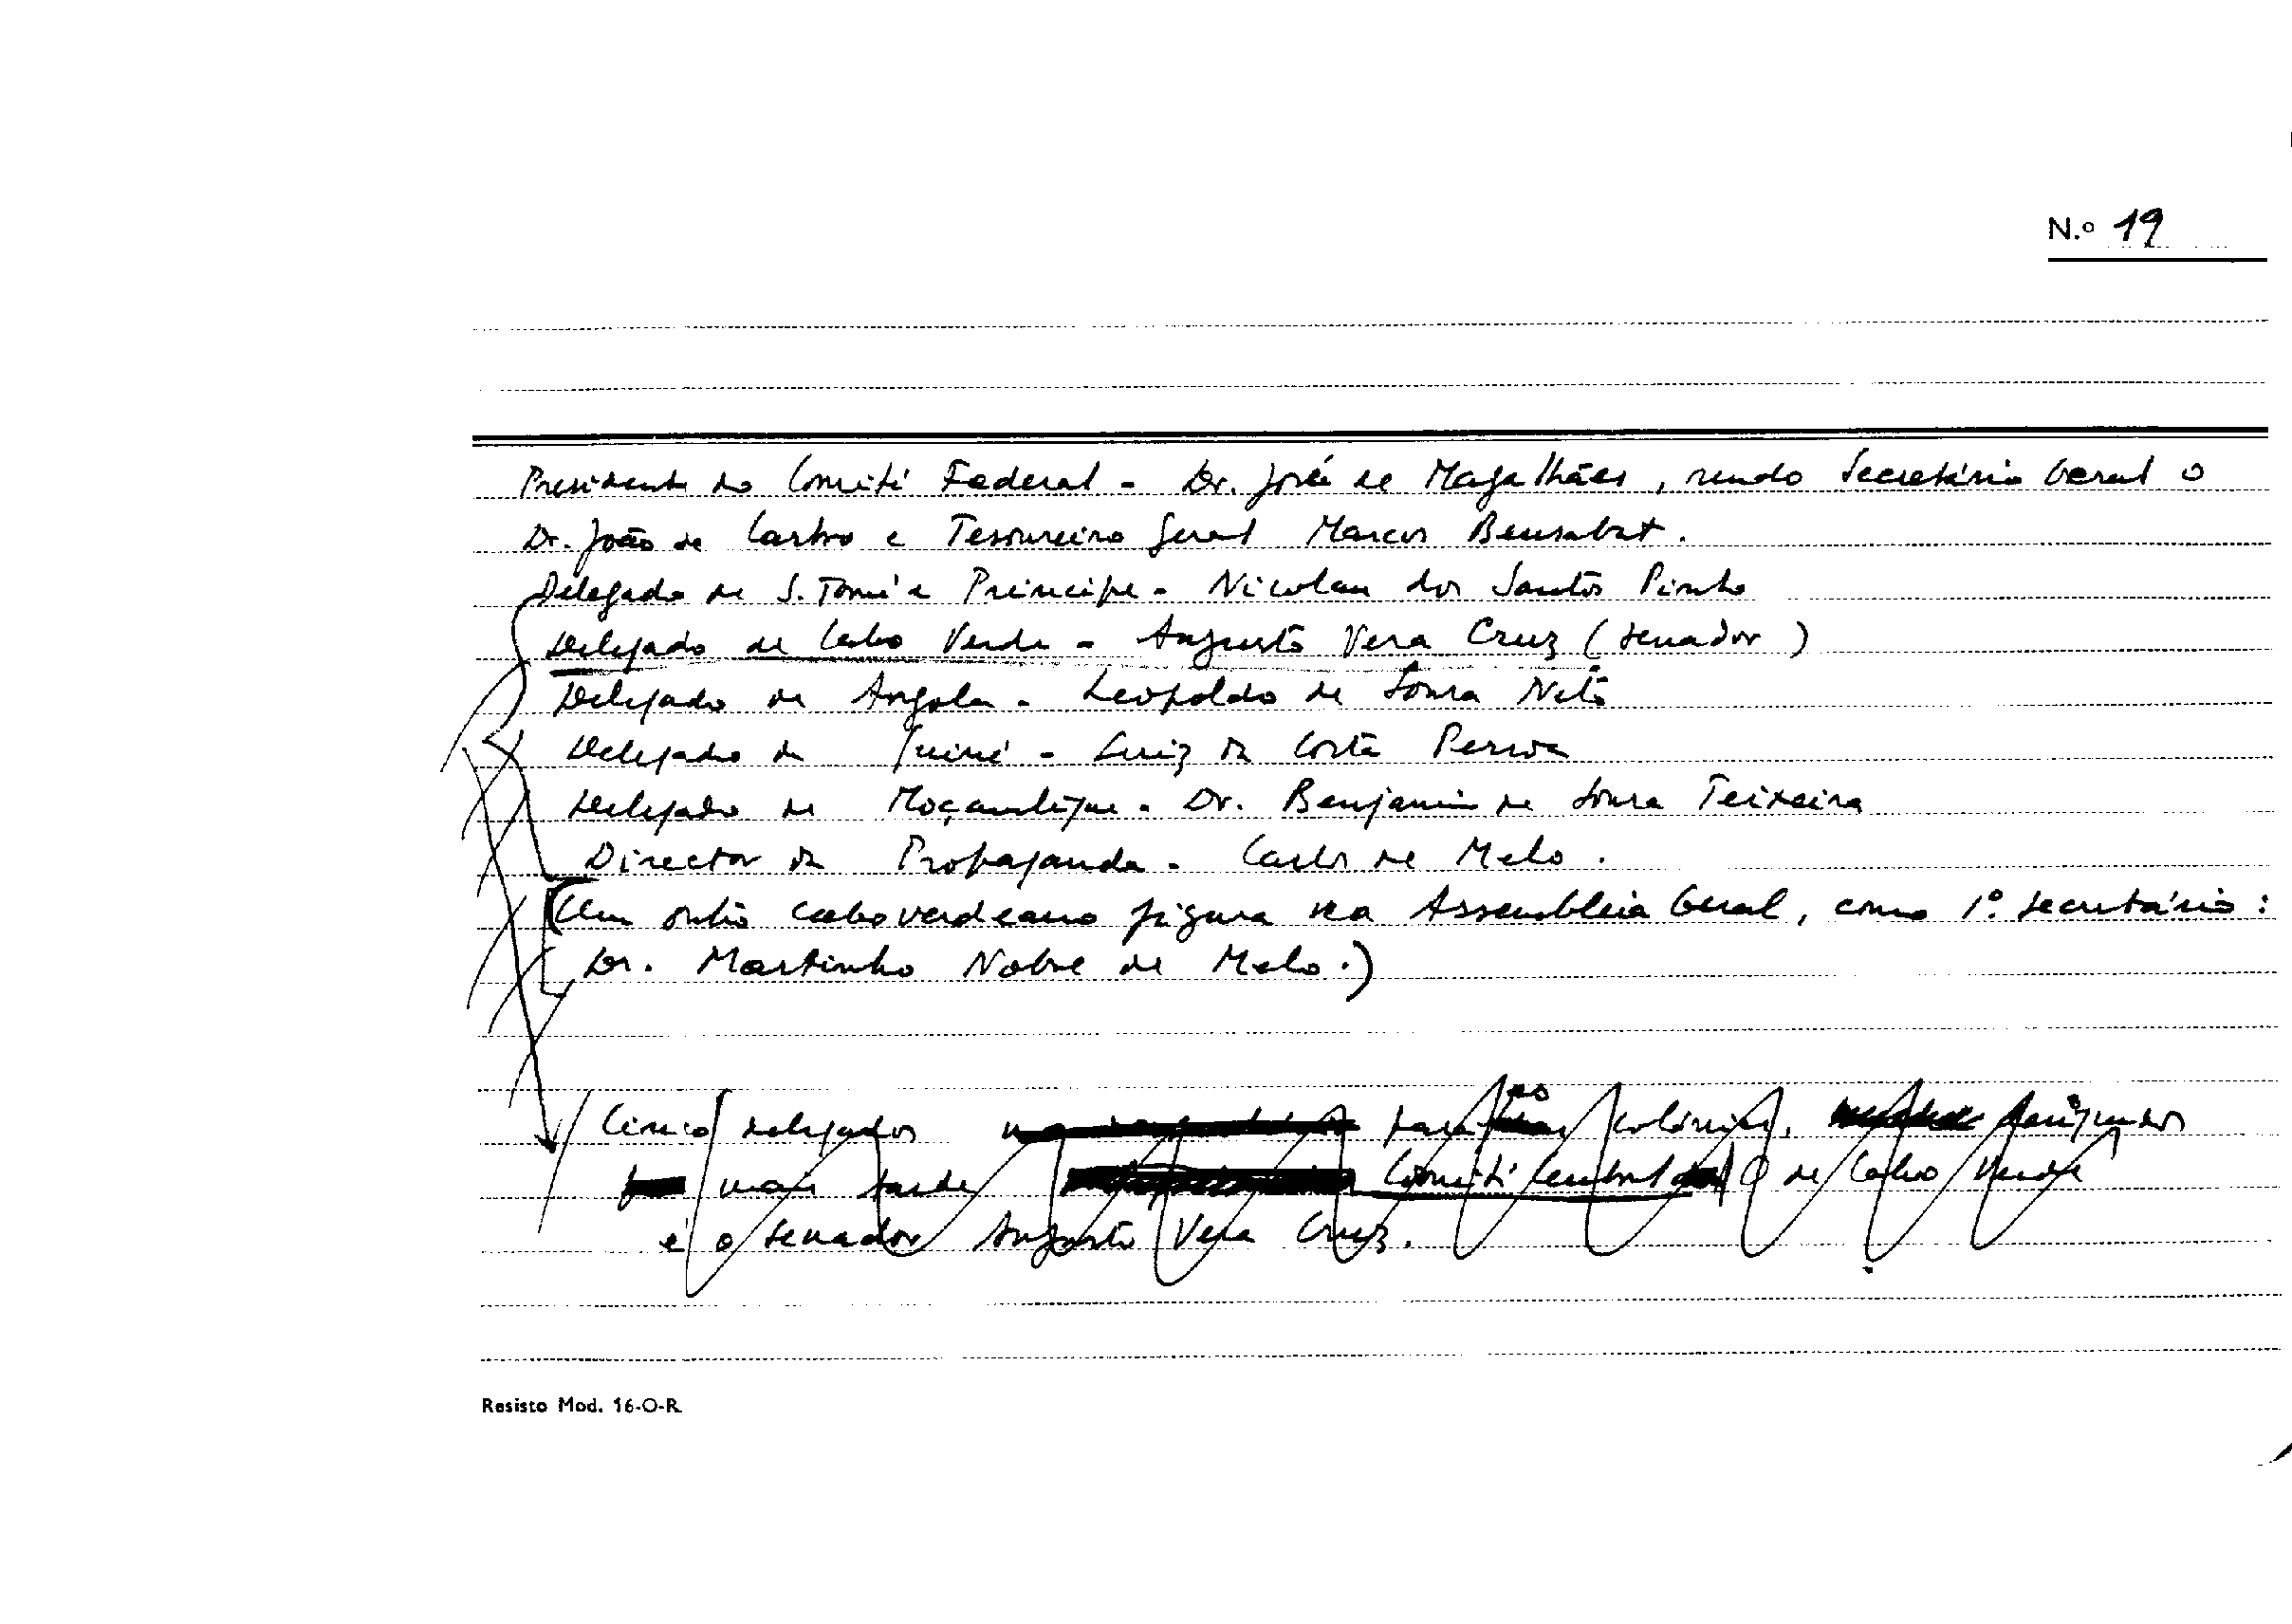 N.º 19
Presidente do Comité Federal - Dr. José de Magalhães, sendo Secretário Geral o
Dr. João de Castro e Tesoureiro Geral Marcos Bensabat.
Delegado de S. Tomé e Príncipe - Nicolau dos Santos Pinto
Delegado de Cabo Verde - Augusto Vera Cruz (senador)
Delegado de Angola - Leopoldo de Sousa Neto
Delegado da Guiné - Luiz da Costa Pessoa
Delegado de Moçambique - Dr. Benjamim de Sousa Teixeira
Director da Propaganda - Carlos de Melo.
(Um outro caboverdeano figura na Assembleia Geral, como 1º. secretário:
Dr. Martinho Nobre de Melo.)
Cinco delegados para as colónias, designados
mais tarde Comité Central O de Cabo Verde
é o senador Augusto Vera Cruz.
Resisto Mod. 16-O-R.